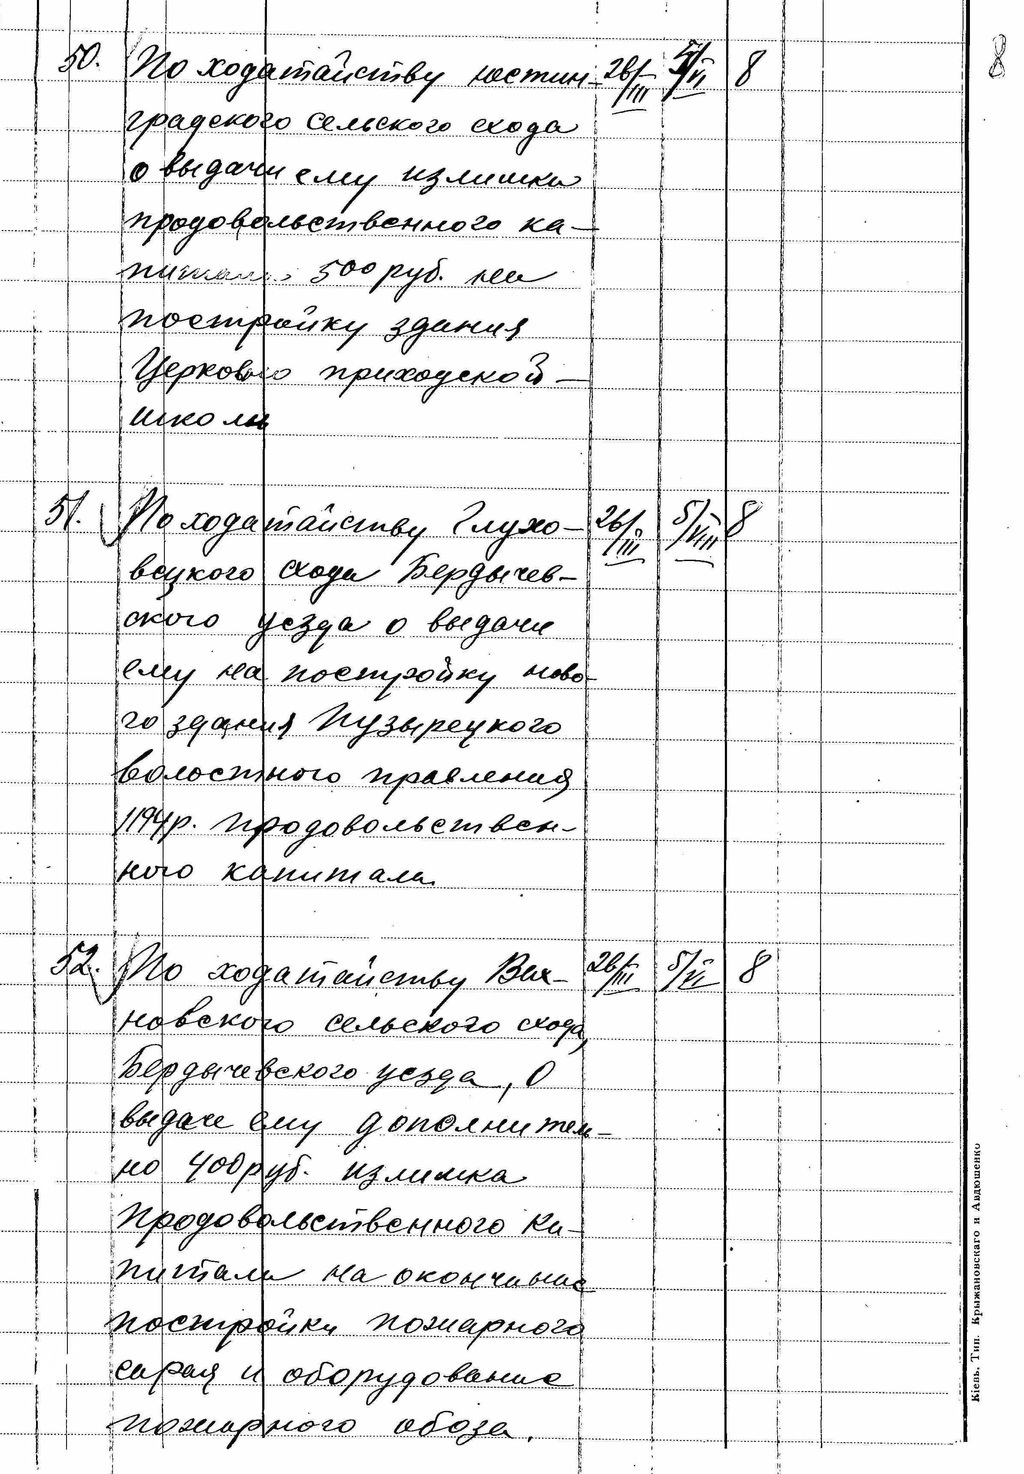 8
50. По ходатайству юстин- 26/III 5/VI 8
градского сельского схода
о выдачи ему излишка
продовольственного ка-
питала 500 руб. на
постройку здания
Церковно приходской
школы
51. По ходатайству Глухо- 26/III 5/VIII 8
вецкого схода Бердычев-
ского уезда о выдачи
ему на постройку ново-
го здания Пузырецкого
волостного правления
1194р. продовольствен-
ного капитала
52. По ходатайству Вах- 26/III 5/VI 8
новского сельского схода,
Бердычевского уезда, О
выдаче ему дополнитель-
но 400 руб. излишка
продовольственного ка-
питала на окончание
постройки пожарного
сарая и оборудование
пожарного обоза.
Кіевъ. Тип. Крыжановскаго и Авдюшенко